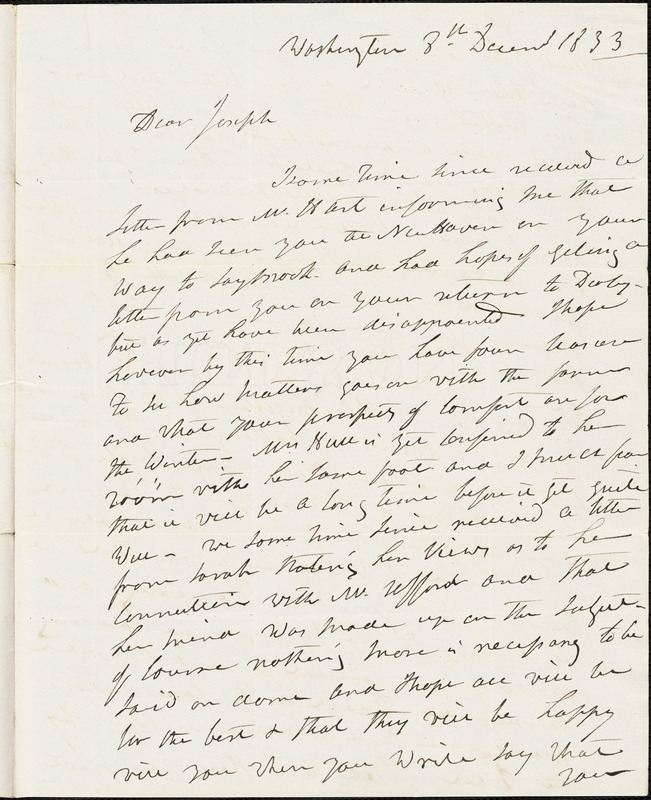 Washington 8th Decem 1833
Dear Joseph
Some time since received a
letter from Mr. Hart informing me that
he had seen you at New Haven on your
way to Saybrook and had hopes of geting a
letter from you on your return to Derby -
but as yet have been disappointed I hope
however by this time you have found leasure
to see how matters goes on with the farm
and that your prospects of comfort are for
the Winter - Mrs Hull is yet confined to her
room with her lame foot and I must fear
that it will be a long time before it get quite
Well - we some time since received a letter
from Sarah stateing her views as to her
connection with Mr. Ufford and that
her mind was made up on the subject -
of course nothing more is necessary to be
said or done and I hope all will be
for the best & that they will be happy
will you when you write say that
you